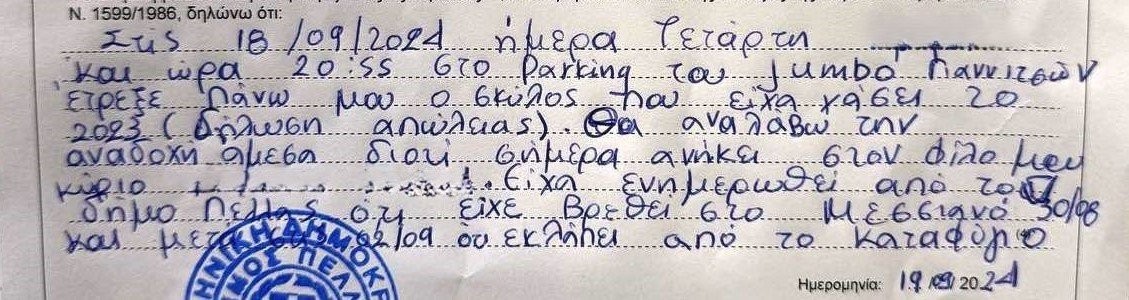 Ν. 1599/1986, δηλώνω ότι:
Στις 18/09/2024 ήμερα Τετάρτη
και ώρα 20:55 στο Parking του Jumbo Γιαννιτσών
έτρεξε πάνω μου ο σκύλος που είχα χάσει 20
2023 (δήλωση απώλειας). Θα αναλάβω την
αναδοχή άμεσα διότι σήμερα ανήκει στον φίλο μου
κύριο Είχα ενημερωθεί από το
δήμο Πέλλας ότι είχε βρεθεί στο Μεσσιανό 30/08
και μετά 02/09 ότι εκλάπει από το καταφύγιο
ΗΝΙΚΗ ΔΗΜΟΚΡ
ΜΟΣ ΠΕΛΛ
Ημερομηνία: 19/09/2024